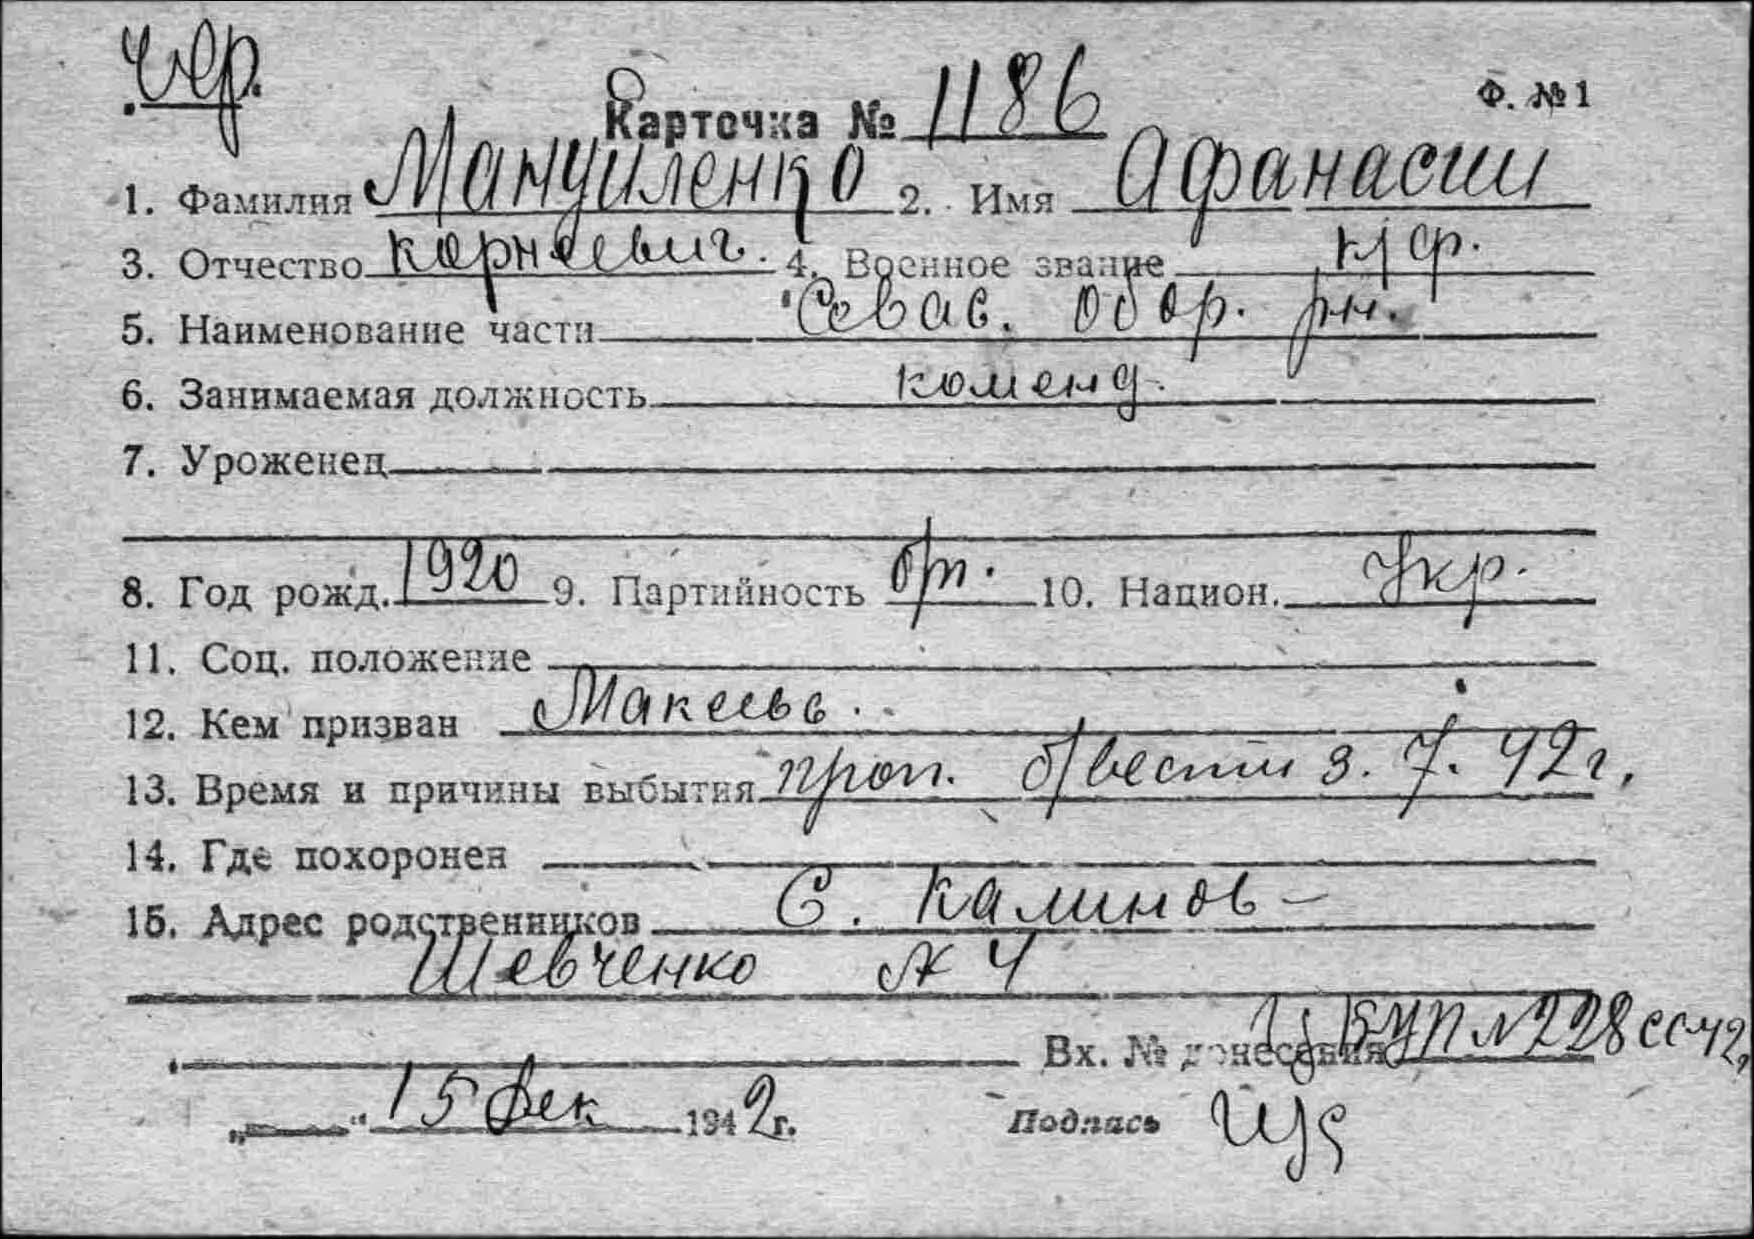 Чер.
Ф. №1
Карточка № 1186
1. Фамилия Мануйленко 2. Имя Афанасии
3. Отчество Корнеевич. 4. Военное звание к/ф.
5. Наименование части Севас. обор. рн.
6. Занимаемая должность коменд.
7. Уроженец
8. Год рожд. 1920 9. Партийность б/п. 10. Национ. Укр.
11. Соц. положение
12. Кем призван Макеевс.
13. Время и причины выбытия проп. б/вести 3. 7. 42 г.
14. Где похоронен
15. Адрес родственников С. Калинов-
Шевченко № 4
Вх. № донесения ЦБУП №228сс42
„ “ 15 дек 1942г. Подпись